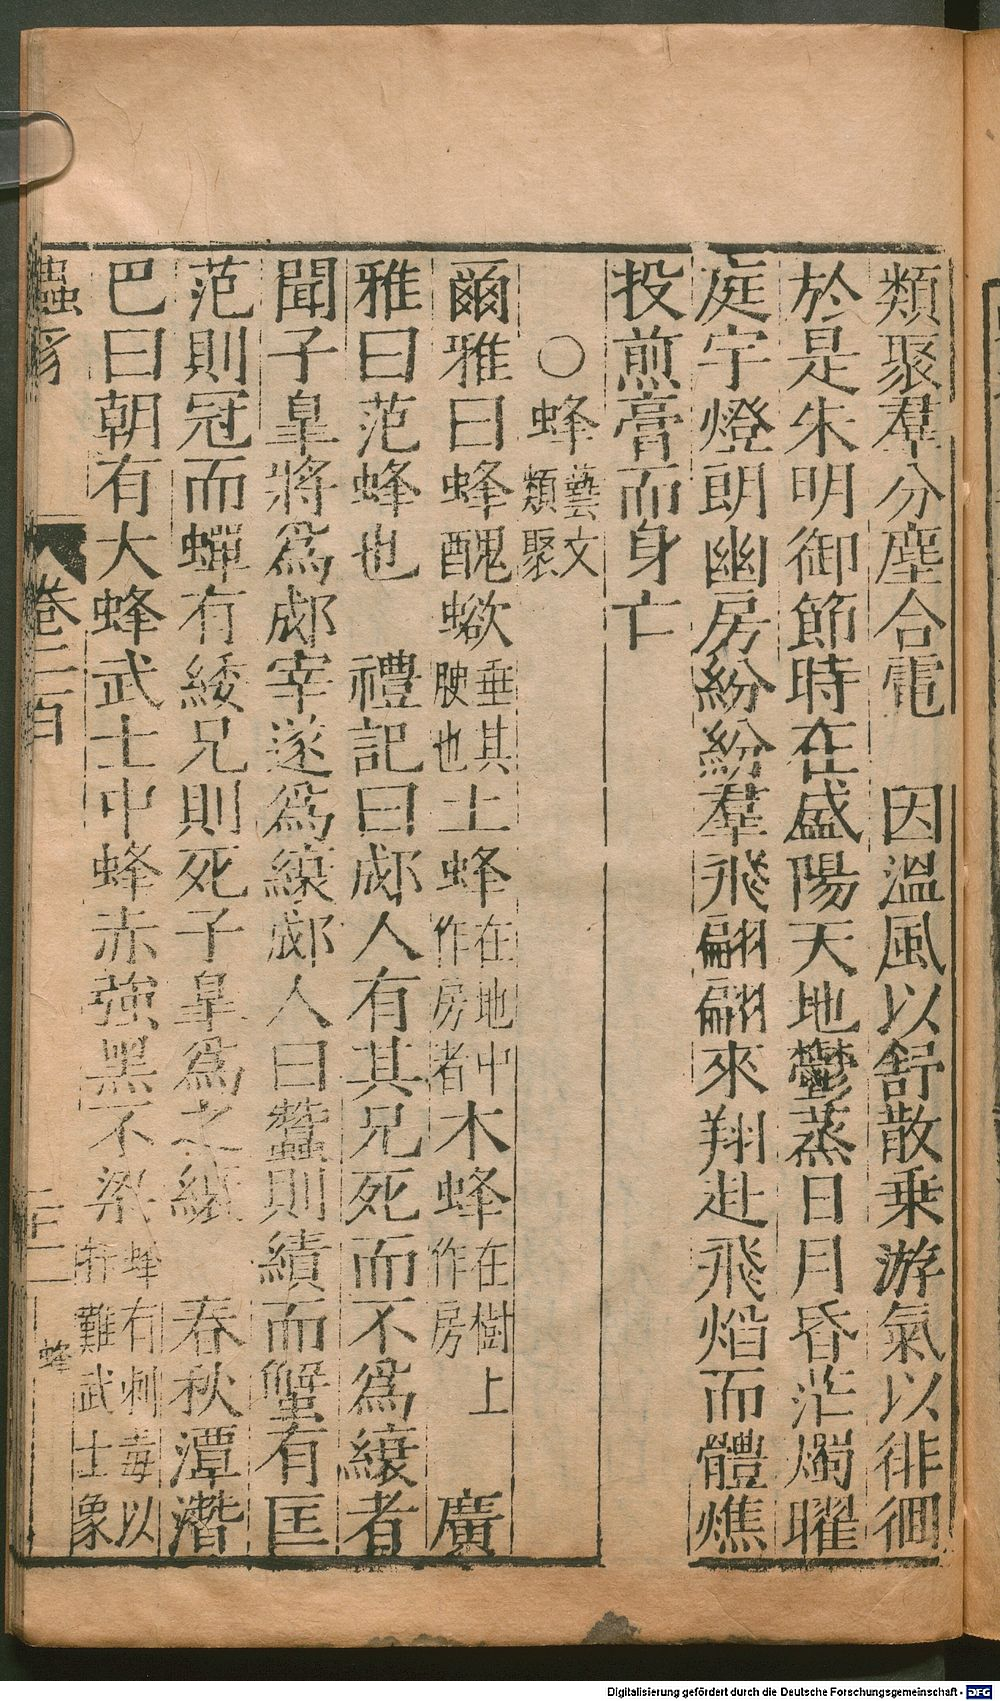 類聚羣分塵合電　因溫風以舒散乗游氣以徘徊
於是朱明御節時在盛陽天地鬱蒸日月昏茫燭曜
庭宇燈朗幽房紛紛羣飛翩翩來翔赴飛焰而體燋
投煎膏而身亡
○蜂藝文類聚
爾雅曰蜂醜螸垂其腴也土蜂在地中作房者木蜂在樹上作房　廣
雅曰范蜂也　禮記曰郕人有其兄死而不爲縗者
聞子皐將爲郕宰遂爲縗郕人曰蠶則績而蟹有匡
范則冠而蟬有緌兄則死子皐爲之縗　春秋潭潛
巴曰朝有大蜂武士中蜂赤強黑不蜂有刺毒以難武士象
蟲豸 卷二百 蜂
Digitalisierung gefördert durch die Deutsche Forschungsgemeinschaft - DFG